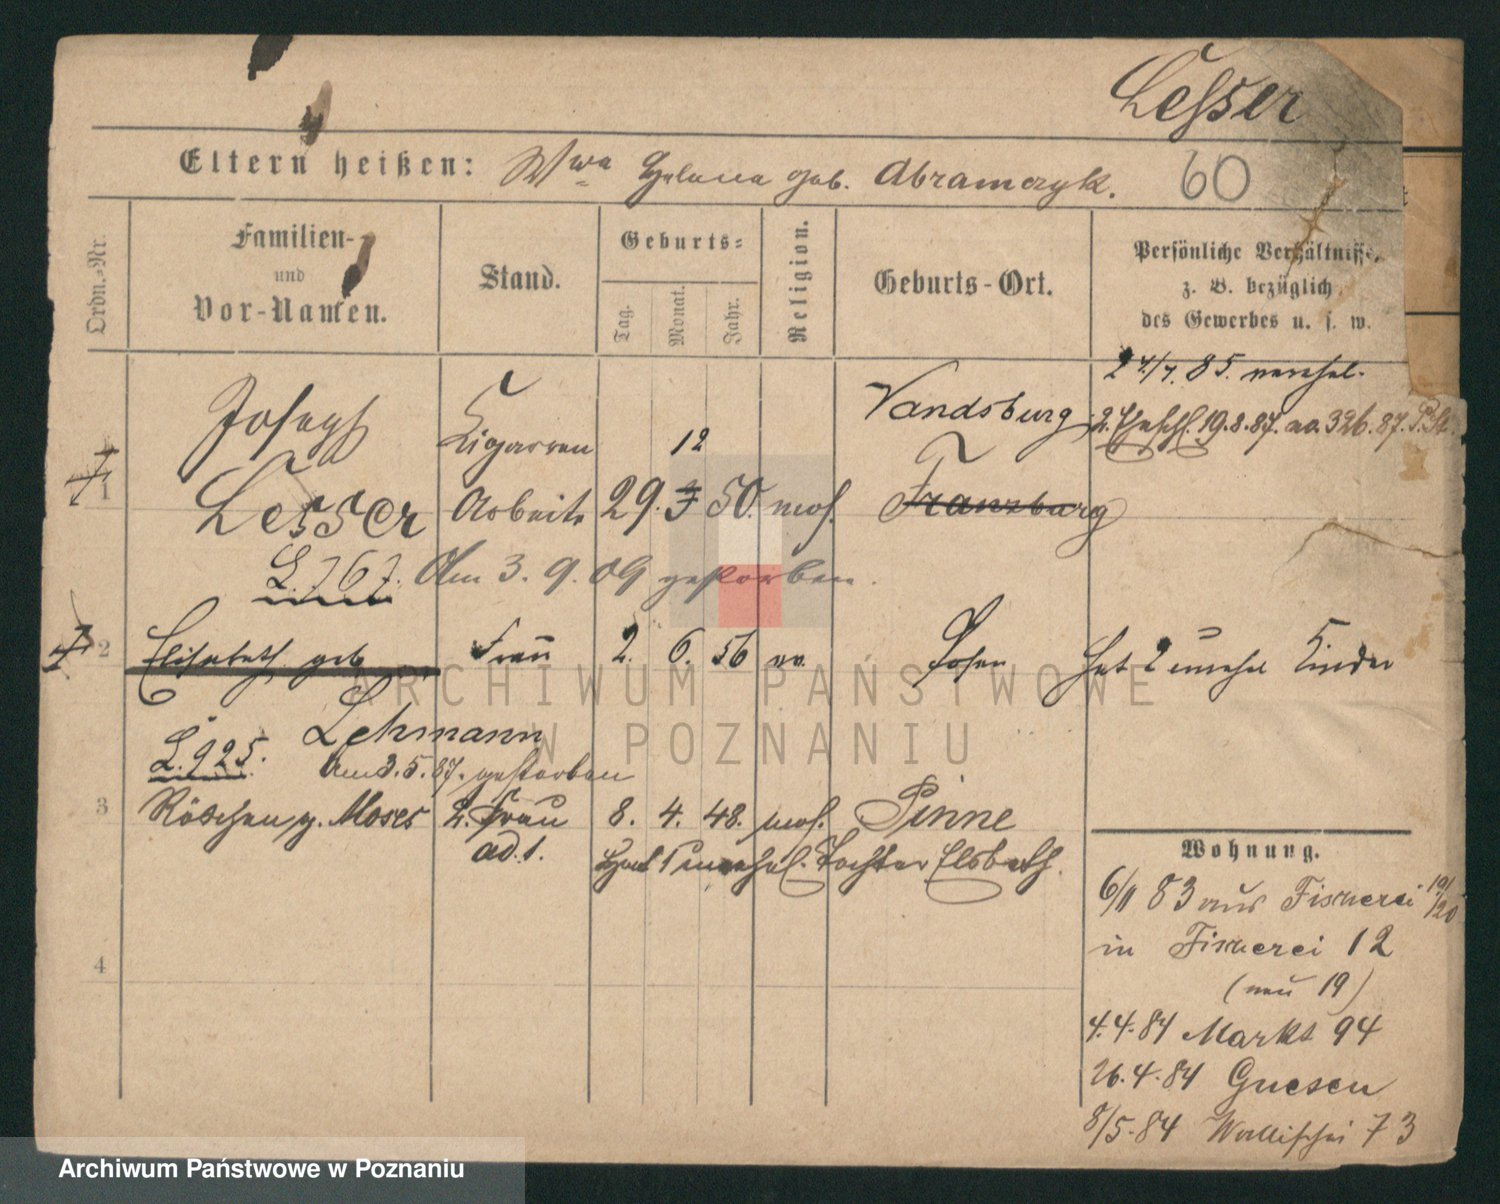 Lesser
Eltern heißen: Wwe Helena geb. Abramczyk. 60
Ordn.-Nr.
Familien-
und
Vor-Namen.
Stand.
Geburts-
Tag. Monat. Jahr.
Religion.
Geburts-Ort.
Persönliche Verhältnisse,
z. B. bezüglich
des Gewerbes u. s. w.
24/7. 85. verehel.
Joseph Cigarren 12 Vandsburg 2. 19.8.87. no. 326.87. P. St.
1 Lesser Arbeitr 29. 50. mos. Franzburg
L. 767. Am 3. 9. 09 gestorben.
2 Elisabeth geb. Frau 2. 6. 56 Posen Hat 2 unehel Kinder
Lehmann
L. 925. am 3.5.87. gestorben
3 Röschen g. Moses 2. Frau 8. 4. 48. mos. Pinne
ad. 1. Hat 1 unehel. Tochter Elsbeth.
Wohnung.
6/11 83 aus Fischerei 19/20
in Fischerei 12
(neu 19)
4
4.4.84 Markt 94
26.4.84 Gnesen
8/5.84 Wallischei 73
ARCHIWUM PAŃSTWOWE
W POZNANIU
Archiwum Państwowe w Poznaniu